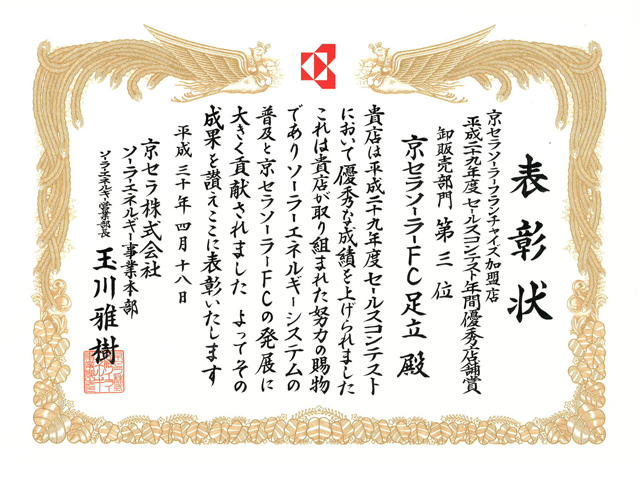 表彰状
京セラソーラーフランチャイズ加盟店
平成二十九年度 セールスコンテスト年間優秀店舗賞
卸販売部門 第三位
京セラソーラーFC足立 殿
貴店は平成二十九年度セールスコンテスト
において優秀な成績を上げられました
これは貴店が取り組まれた努力の賜物
でありソーラーエネルギーシステムの
普及と京セラソーラーFCの発展に
大きく貢献されました よってその
成果を讃えここに表彰いたします
平成三十年四月十八日
京セラ株式会社
ソーラーエネルギー事業本部
ソーラーエネルギー営業部長 玉川雅樹